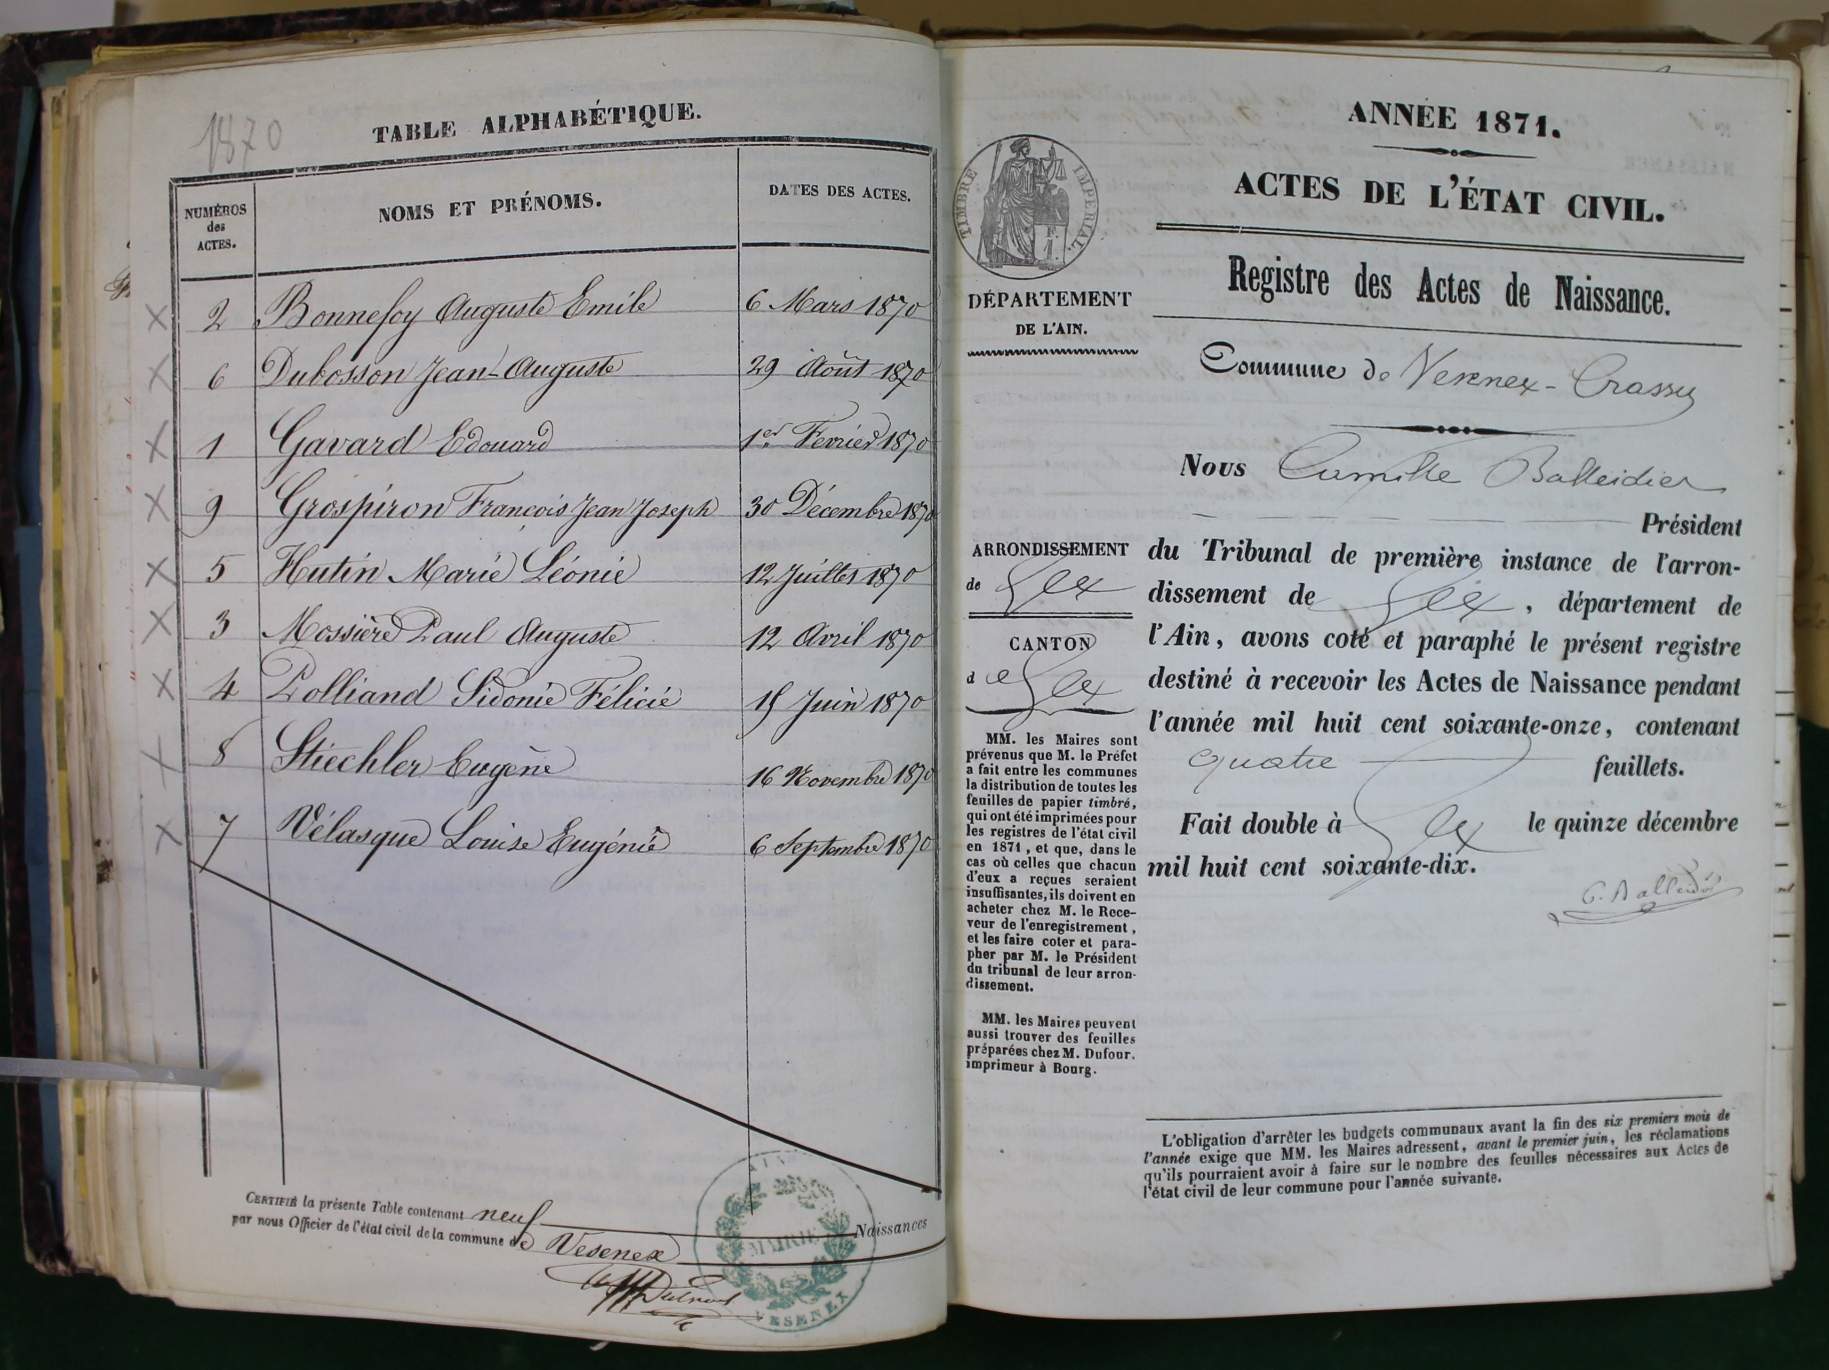 1870
TABLE ALPHABÉTIQUE.
NUMÉROS des ACTES.
NOMS ET PRÉNOMS.
DATES DES ACTES.
2 Bonnefoy Auguste Emile 6 Mars 1870
6 Dubosson Jean-Auguste 29 Août 1870
1 Gavard Edouard 1er Fevrier 1870
9 Grospiron François Jean Joseph 30 Décembre 1870
5 Hutin Marie Léonie 12 Juillet 1870
3 Mossière Paul Auguste 12 Avril 1870
4 Polliand Sidonie Félicie 15 Juin 1870
8 Stiechler Eugène 16 Novembre 1870
7 Vélasque Louise Eugénie 6 Septembre 1870
CERTIFIÉ la présente Table contenant neuf Naissances
par nous Officier de l'état civil de la commune de Vesenex
MAIRIE
VESENEX
ANNÉE 1871.
ACTES DE L'ÉTAT CIVIL.
TIMBRE IMPÉRIAL.
DÉPARTEMENT
DE L'AIN.
Registre des Actes de Naissance.
Commune de Vesenex-Crassy
Nous Camille Balleidier
Président
ARRONDISSEMENT
de Gex
CANTON
de Gex
du Tribunal de première instance de l'arron-
dissement de Gex, département de
l'Ain, avons coté et paraphé le présent registre
destiné à recevoir les Actes de Naissance pendant
l'année mil huit cent soixante-onze, contenant
quatre feuillets.
Fait double à Gex le quinze décembre
mil huit cent soixante-dix.
C. Balleidier
MM. les Maires sont
prévenus que M. le Préfet
a fait entre les communes
la distribution de toutes les
feuilles de papier timbré,
qui ont été imprimées pour
les registres de l'état civil
en 1871, et que, dans le
cas où celles que chacun
d'eux a reçues seraient
insuffisantes, ils doivent en
acheter chez M. le Rece-
veur de l'enregistrement,
et les faire coter et para-
pher par M. le Président
du tribunal de leur arron-
dissement.
MM. les Maires peuvent
aussi trouver des feuilles
préparées chez M. Dufour.
imprimeur à Bourg.
L'obligation d'arrêter les budgets communaux avant la fin des six premiers mois de
l'année exige que MM. les Maires adressent, avant le premier juin, les réclamations
qu'ils pourraient avoir à faire sur le nombre des feuilles nécessaires aux Actes de
l'état civil de leur commune pour l'année suivante.